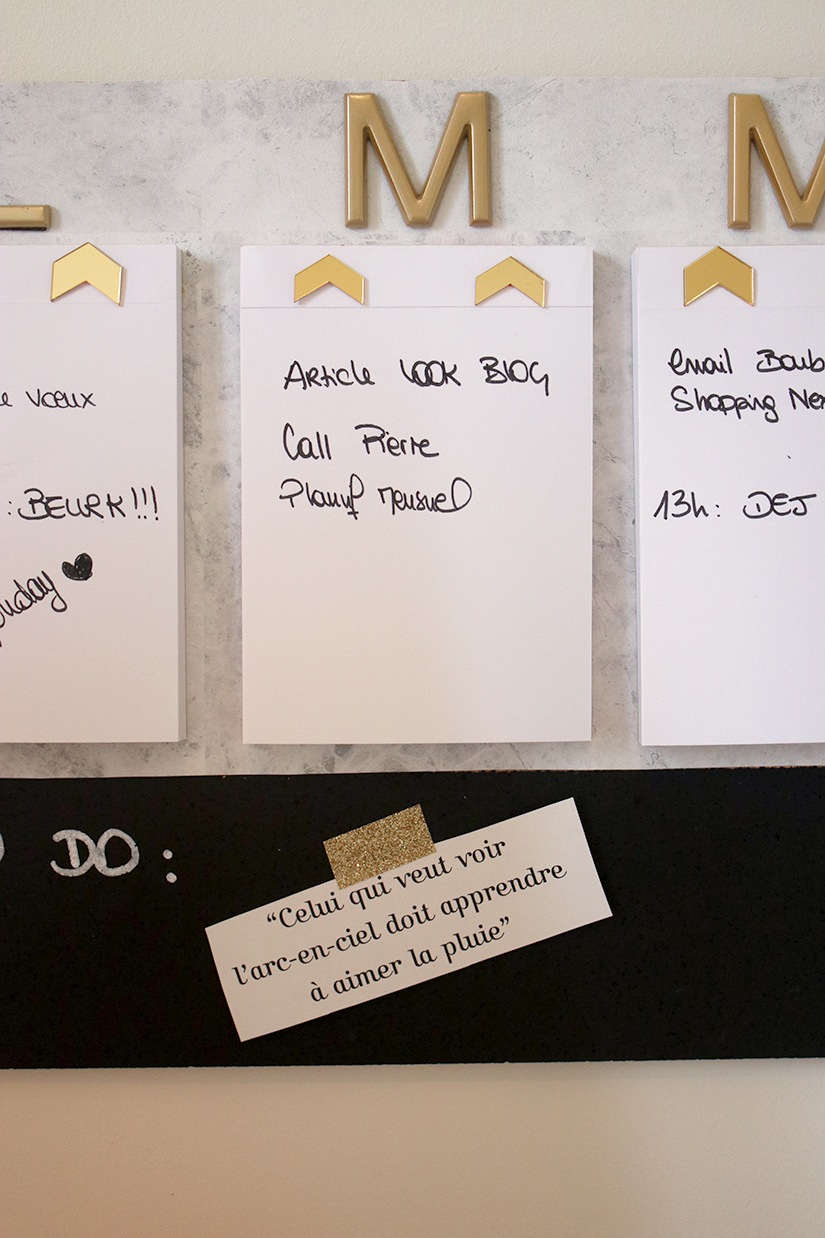 L M M
Vœux
: BEURK!!!
Article look BLOG
Call Pierre
Planif Mensuel
email Boub
Shopping Ne
13h: DEJ
DO :
“Celui qui veut voir
l’arc-en-ciel doit apprendre
à aimer la pluie”